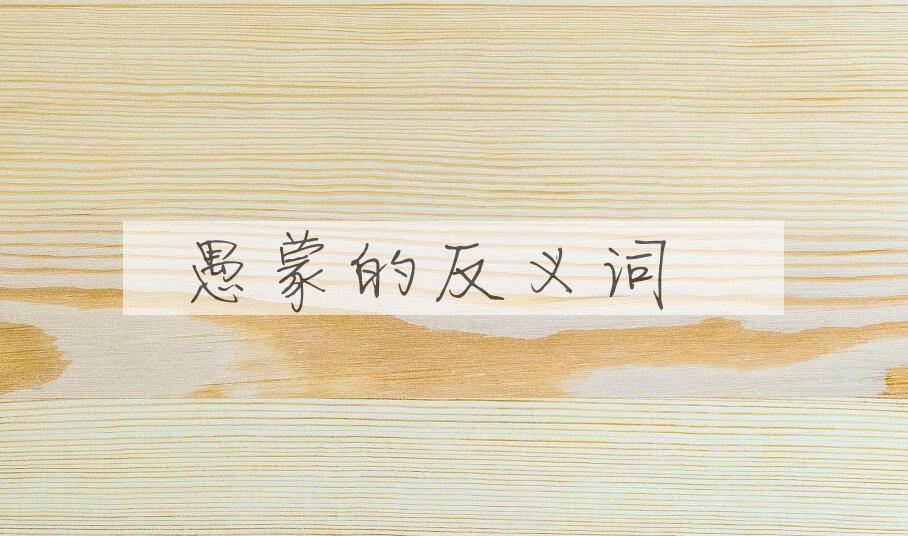 愚蒙的反义词